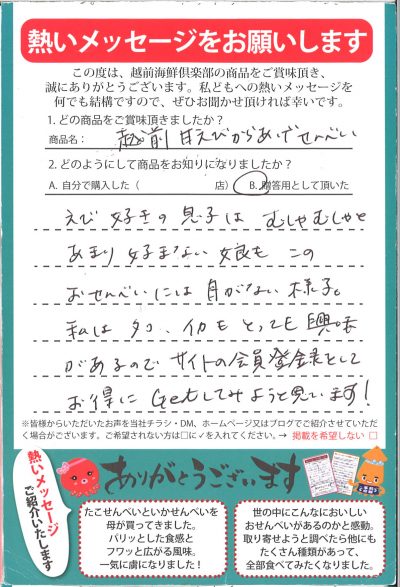 熱いメッセージをお願いします
この度は、越前海鮮倶楽部の商品をご賞味頂き、
誠にありがとうございます。私どもへの熱いメッセージを
何でも結構ですので、ぜひお聞かせ頂ければ幸いです。
1. どの商品をご賞味頂きましたか?
商品名: 越前 甘えびからあげせんべい
2. どのようにして商品をお知りになりましたか?
A. 自分で購入した( 店) B. 贈答用として頂いた
えび好きの息子は むしゃむしゃと
あまり好まない娘も この
おせんべいには目がない様子。
私は タコ、イカも とっても 興味
があるので サイトの会員登録をして
お得に Getしてみようと思います!
※皆様からいただいたお声を当社チラシ・DM、ホームページ又はブログでご紹介させていただ
く場合がございます。ご希望されない方は□に✓を入れてください。→ 掲載を希望しない □
熱いメッセージ
ご紹介いたします
ありがとうございます
たこせんべいといかせんべいを
母が買ってきました。
パリッとした食感と
フワッと広がる風味。
一気に虜になりました!
世の中にこんなにおいしい
おせんべいがあるのかと感動。
取り寄せようと調べたら他にも
たくさん種類があって、
全部食べてみたくなりました。